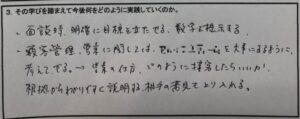 3. その学びを踏まえて今後何をどのように実践していくのか。
・面談時、明確に目標を立たせる、数字で提示する。
営業に関しては、を大事にするように、
考えさせる。→営業の仕方、どのように接客したらいいか、
根拠からわかりやすく説明する。相手の意見をとり入れる。